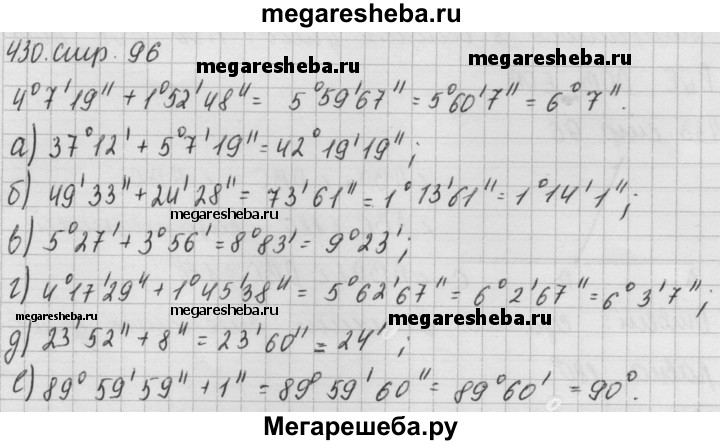 megaresheba.ru
430. стр. 96
megaresheba.ru
4°7'19" + 1°52'48" = 5°59'67" = 5°60'7" = 6°7".
а) 37°12' + 5°7'19" = 42°19'19";
б) 49'33" + 24'28" = 73'61" = 1°13'61" = 1°14'1";
megaresheba.ru
в) 5°27' + 3°56' = 8°83' = 9°23';
г) 4°17'29" + 1°45'38" = 5°62'67" = 6°2'67" = 6°3'7";
megaresheba.ru
д) 23'52" + 8" = 23'60" = 24';
е) 89°59'59" + 1" = 89°59'60" = 89°60' = 90°.
Мегарешеба.ру